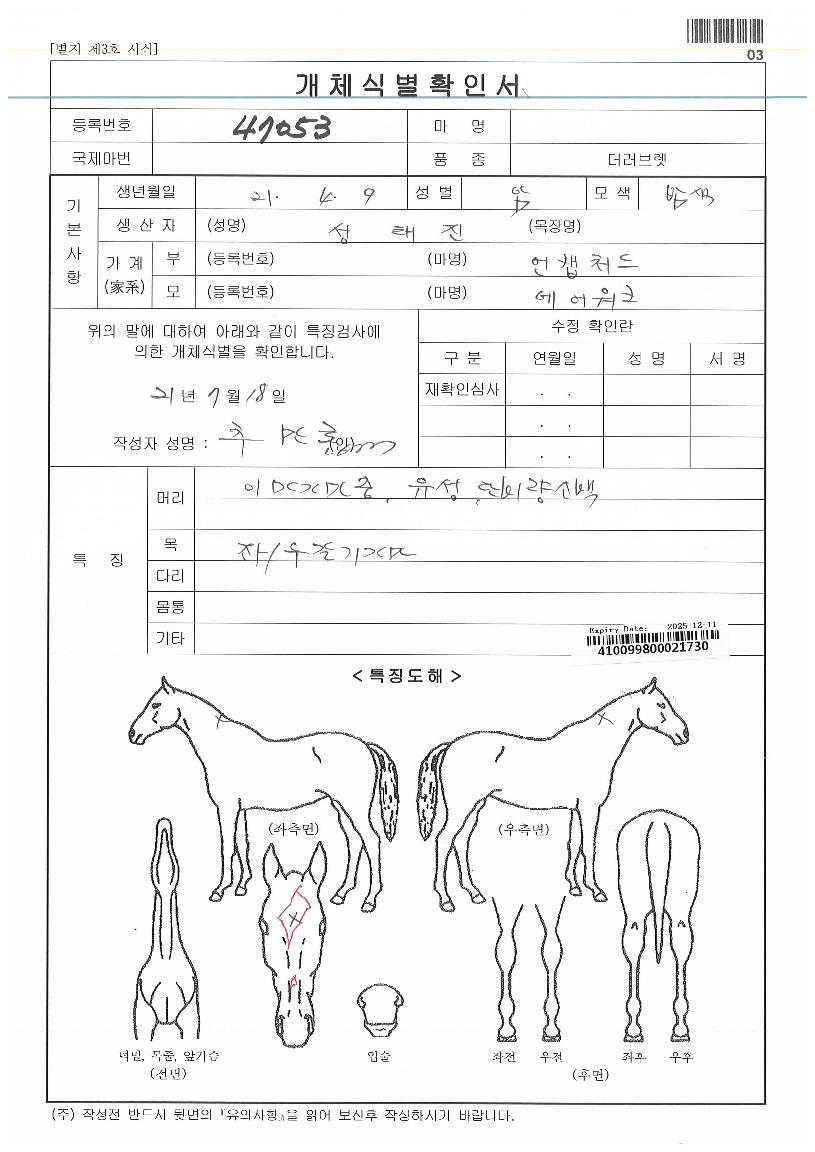 [별지 제3호 서식]
03
개체식별확인서
등록번호 47053 마 명
국제마번 품 종 더러브렛
기본사항
생년월일 21. 4. 9 성별 암 모색 밤색
생산자 (성명) 성태진 (목장명)
가계(家系) 부 (등록번호) (마명) 언캡처드
모 (등록번호) (마명) 에어워크
위의 말에 대하여 아래와 같이 특징검사에
의한 개체식별을 확인합니다.
21년 7월 18일
작성자 성명 : (인)
수정 확인란
구분 연월일 성명 서명
재확인심사 . .
. .
. .
특 징
머리 유성
목 좌/우
다리
몸통
기타
Expiry Date: 2025-12-11
410099800021730
< 특징도해 >
(좌측면) (우측면)
턱밑, 목줄, 앞가슴
(전면)
입술
좌전 우전 좌후 우후
(후면)
(주) 작성전 반드시 뒷면의 『유의사항』을 읽어 보신후 작성하시기 바랍니다.